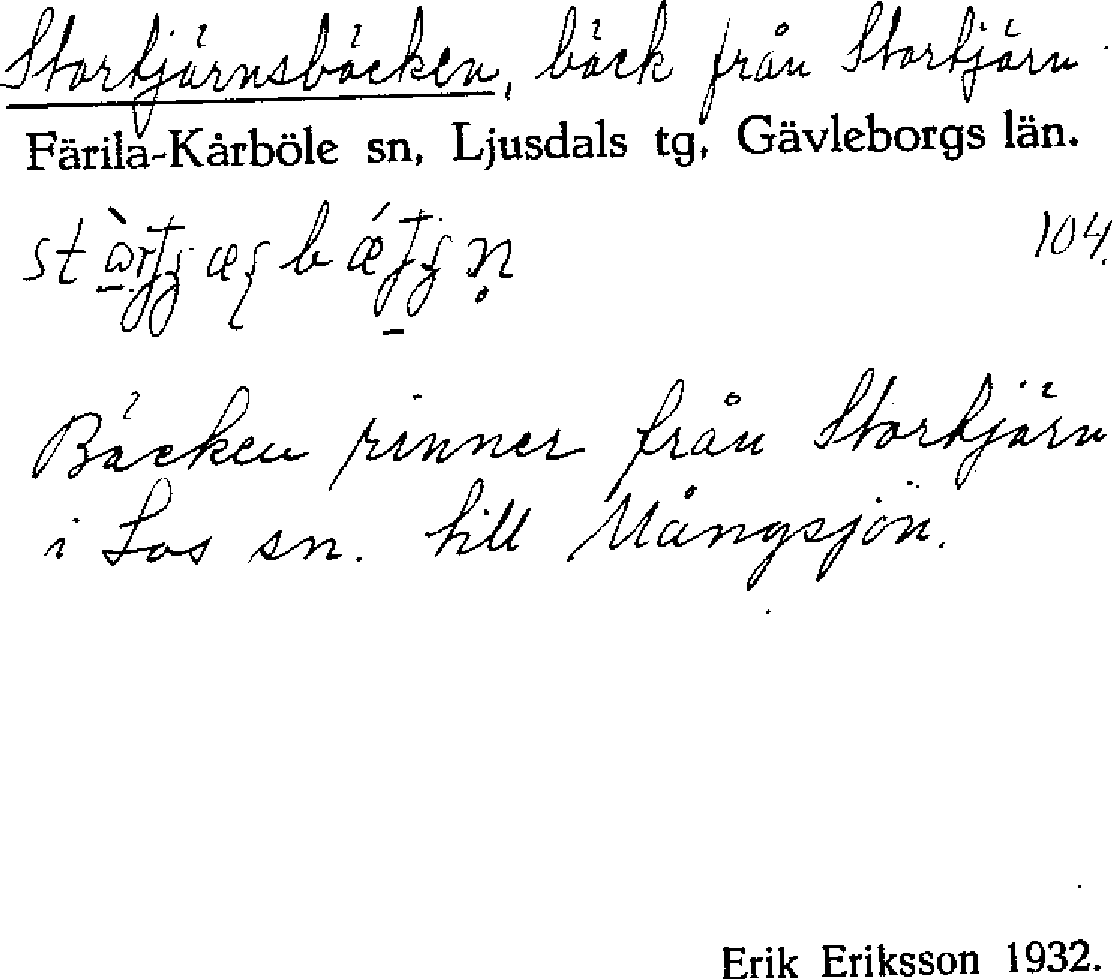 Stortjärnsbäcken, bäck från Stortjärn
Färila-Kårböle sn, Ljusdals tg, Gävleborgs län.
104.
Bäcken rinner från Stortjärn
i Los sn. till Mångsjön.
Erik Eriksson 1932.